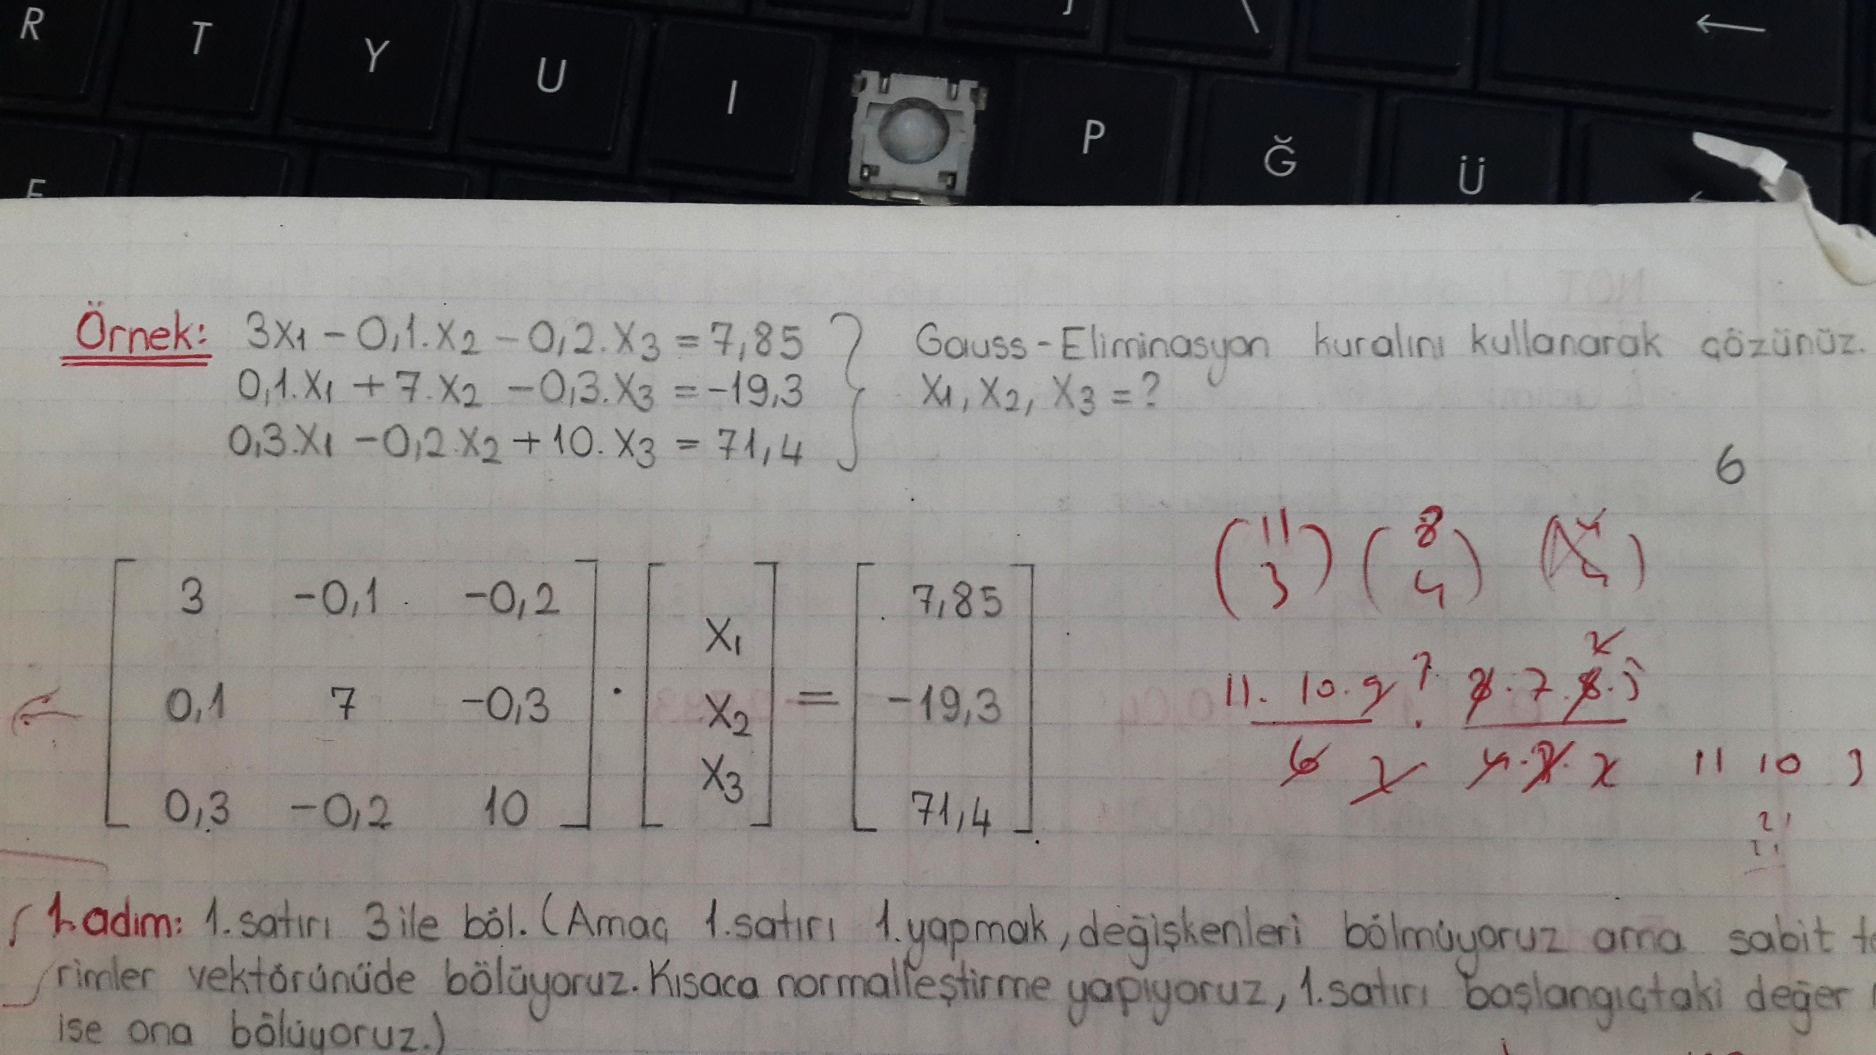 R T Y U I P Ğ Ü
Örnek: 3x1 - 0,1.x2 - 0,2.x3 = 7,85
0,1.x1 + 7.x2 - 0,3.x3 = -19,3
0,3.x1 - 0,2.x2 + 10.x3 = 71,4
Gauss-Eliminasyon kuralını kullanarak çözünüz.
x1, x2, x3 = ?
6
3 -0,1 -0,2
0,1 7 -0,3
0,3 -0,2 10
x1
x2
x3
=
7,85
-19,3
71,4
(11 3) (8 4)
11. 10. 9
11 10 3
1. adım: 1.satırı 3 ile böl. (Amaç 1.satırı 1.yapmak, değişkenleri bölmüyoruz ama sabit te
rimler vektörünüde bölüyoruz. Kısaca normalleştirme yapıyoruz, 1.satırı başlangıçtaki değer
ise ona bölüyoruz.)